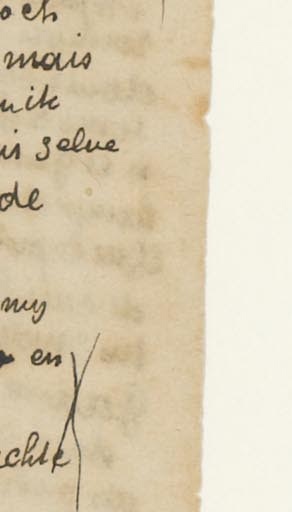 och
mais
uik
is selve
de
my
en
achte